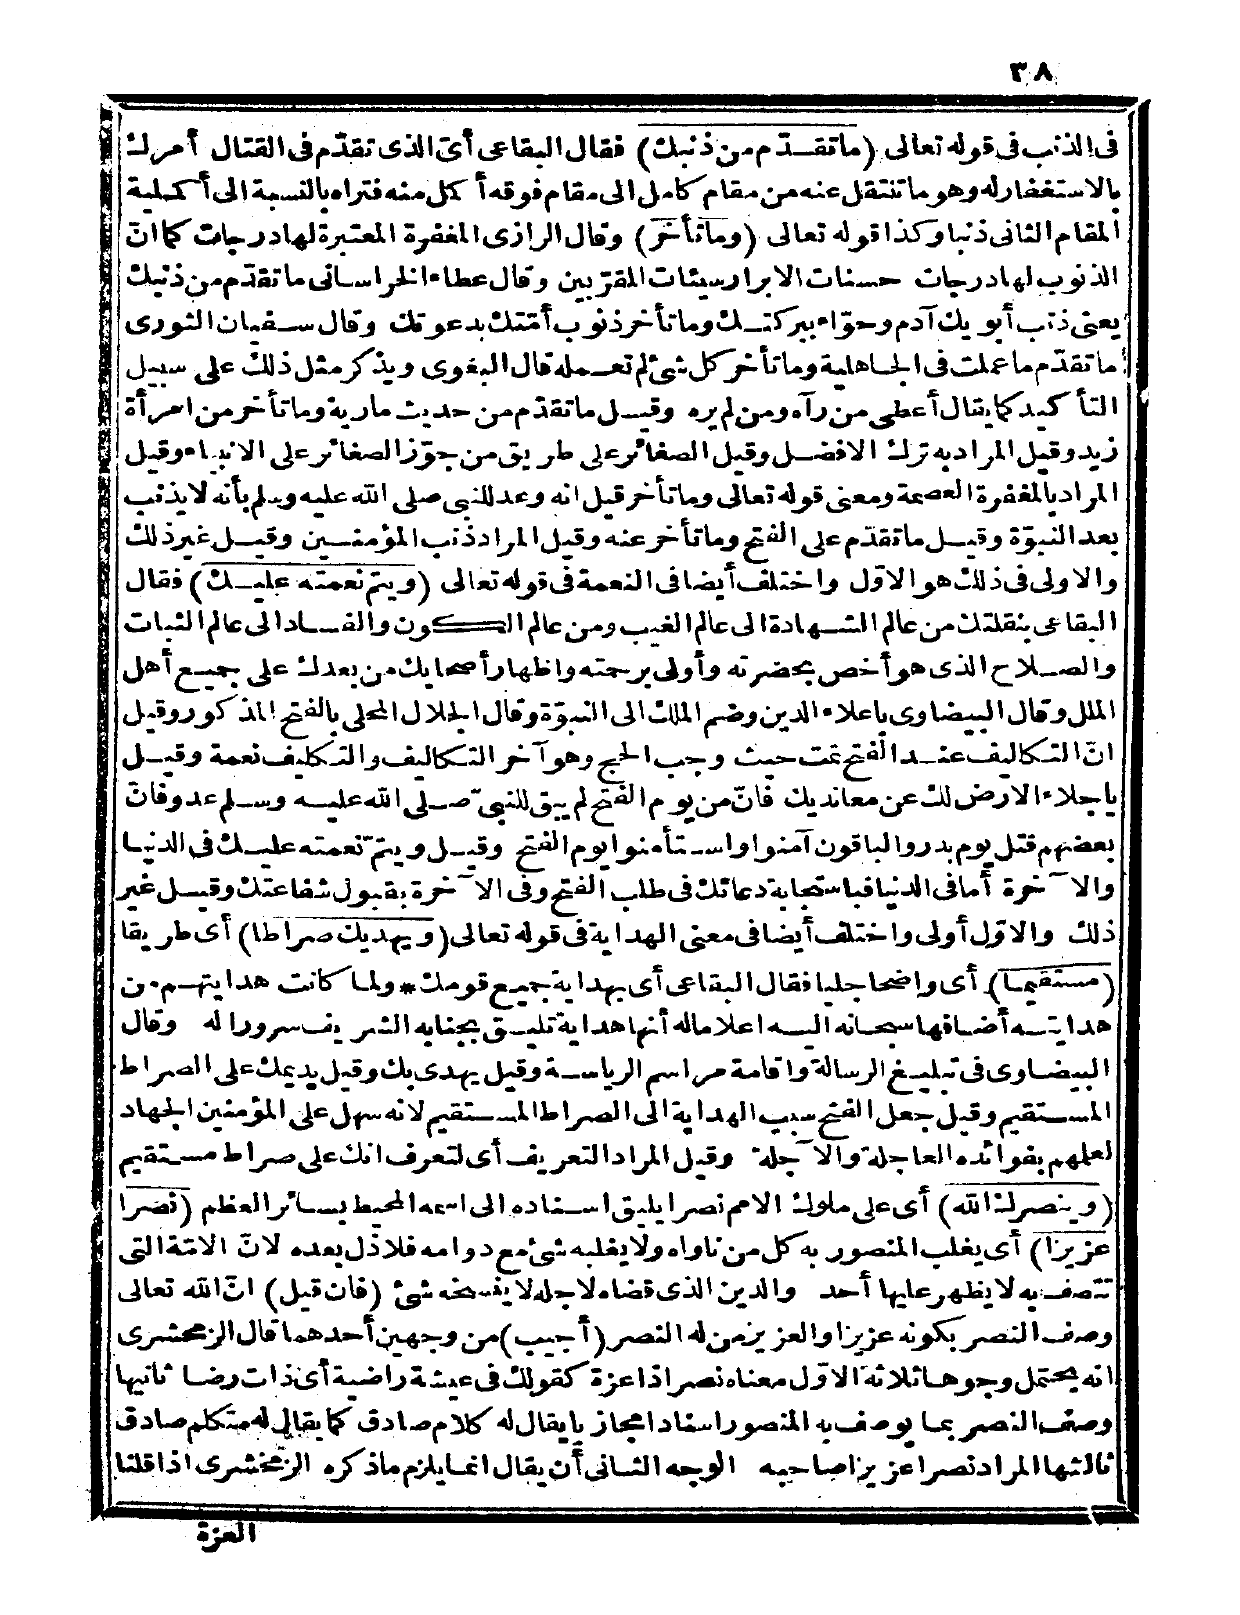 ٣٨
فى الذنب فى قوله تعالى (ما تقدّم من ذنبك) فقال البقاعى أى الذى تقدّم فى القتال أمرك
بالاستغفار له وهو ما تنتقل عنه من مقام كامل الى مقام فوقه أكمل منه فتراه بالنسبة الى أكملية
المقام الثانى ذنبا وكذا قوله تعالى (وما تأخر) وقال الرازى المغفرة المعتبرة لها درجات كما انّ
الذنوب لها درجات حسنات الابرار سيئات المقرّبين وقال عطاء الخراسانى ما تقدّم من ذنبك
يعنى ذنب أبويك آدم وحوّاء ببركتك وما تأخر ذنوب أمّتك بدعوتك وقال سفيان الثورى
ما تقدّم ما عملت فى الجاهلية وما تأخر كل شئ لم تعمله قال البغوى ويذكر مثل ذلك على سبيل
التأكيد كما يقال أعطى من رآه ومن لم يره وقيل ما تقدّم من حديث مارية وما تأخر من امرأة
زيد وقيل المراد به ترك الافضل وقيل الصغائر على طريق من جوّز الصغائر على الانبياء وقيل
المراد بالمغفرة العصمة ومعنى قوله تعالى وما تأخر قيل انه وعد للنبى صلى الله عليه وسلم بأنه لا يذنب
بعد النبوّة وقيل ما تقدّم على الفتح وما تأخر عنه وقيل المراد ذنب المؤمنين وقيل غير ذلك
والاولى فى ذلك هو الاوّل واختلف أيضا فى النعمة فى قوله تعالى (ويتم نعمته عليك) فقال
البقاعى بنقلتك من عالم الشهادة الى عالم الغيب ومن عالم الكون والفساد الى عالم الثبات
والصلاح الذى هو أخص بحضرته وأولى برحمته واظهار أصحابك من بعدك على جميع أهل
الملل وقال البيضاوى باعلاء الدين وضم الملك الى النبوّة وقال الجلال المحلى بالفتح المذكور وقيل
انّ التكاليف عند الفتح تمت حيث وجب الحج وهو آخر التكاليف والتكليف نعمة وقيل
باجلاء الارض لك عن معانديك فانّ من يوم الفتح لم يبق للنبىّ صلى الله عليه وسلم عدو فانّ
بعضهم قتل يوم بدر والباقون آمنوا واستأمنوا يوم الفتح وقيل ويتمّ نعمته عليك فى الدنيا
والآخرة أما فى الدنيا فباستجابة دعائك فى طلب الفتح وفى الآخرة بقبول شفاعتك وقيل غير
ذلك والاوّل أولى واختلف أيضا فى معنى الهداية فى قوله تعالى (ويهديك صراطا) أى طريقا
(مستقيما) أى واضحا جليا فقال البقاعى أى بهداية جميع قومك * ولما كانت هدايتهم من
هدايته أضافها سبحانه اليه اعلاما له أنها هداية تليق بجنابه الشريف سرورا له وقال
البيضاوى فى تبليغ الرسالة واقامة مراسم الرياسة وقيل يهدى بك وقيل يديمك على الصراط
المستقيم وقيل جعل الفتح سبب الهداية الى الصراط المستقيم لانه سهل على المؤمنين الجهاد
لعلمهم بفوائده العاجلة والآجلة وقيل المراد التعريف أى لتعرف انك على صراط مستقيم
(وينصرك الله) أى على ملوك الامم نصرا يليق اسناده الى اسمه المحيط بسائر العظم (نصرا
عزيزا) أى يغلب المنصور به كل من ناواه ولا يغلبه شئ مع دوامه فلا ذل بعده لانّ الامّة التى
تتصف به لا يظهر عليها أحد والدين الذى قضاه لاجله لا ينسخه شئ (فان قيل) انّ الله تعالى
وصف النصر بكونه عزيزا والعزيز من له النصر (أجيب) من وجهين أحدهما قال الزمخشرى
انه يحتمل وجوها ثلاثة الاوّل معناه نصرا ذا عزة كقولك فى عيشة راضية أى ذات رضا ثانيها
وصف النصر بما يوصف به المنصور اسنادا مجازيا يقال له كلام صادق كما يقال له متكلم صادق
ثالثها المراد نصرا عزيزا صاحبه الوجه الثانى أن يقال انما يلزم ما ذكره الزمخشرى اذا قلنا
العزة